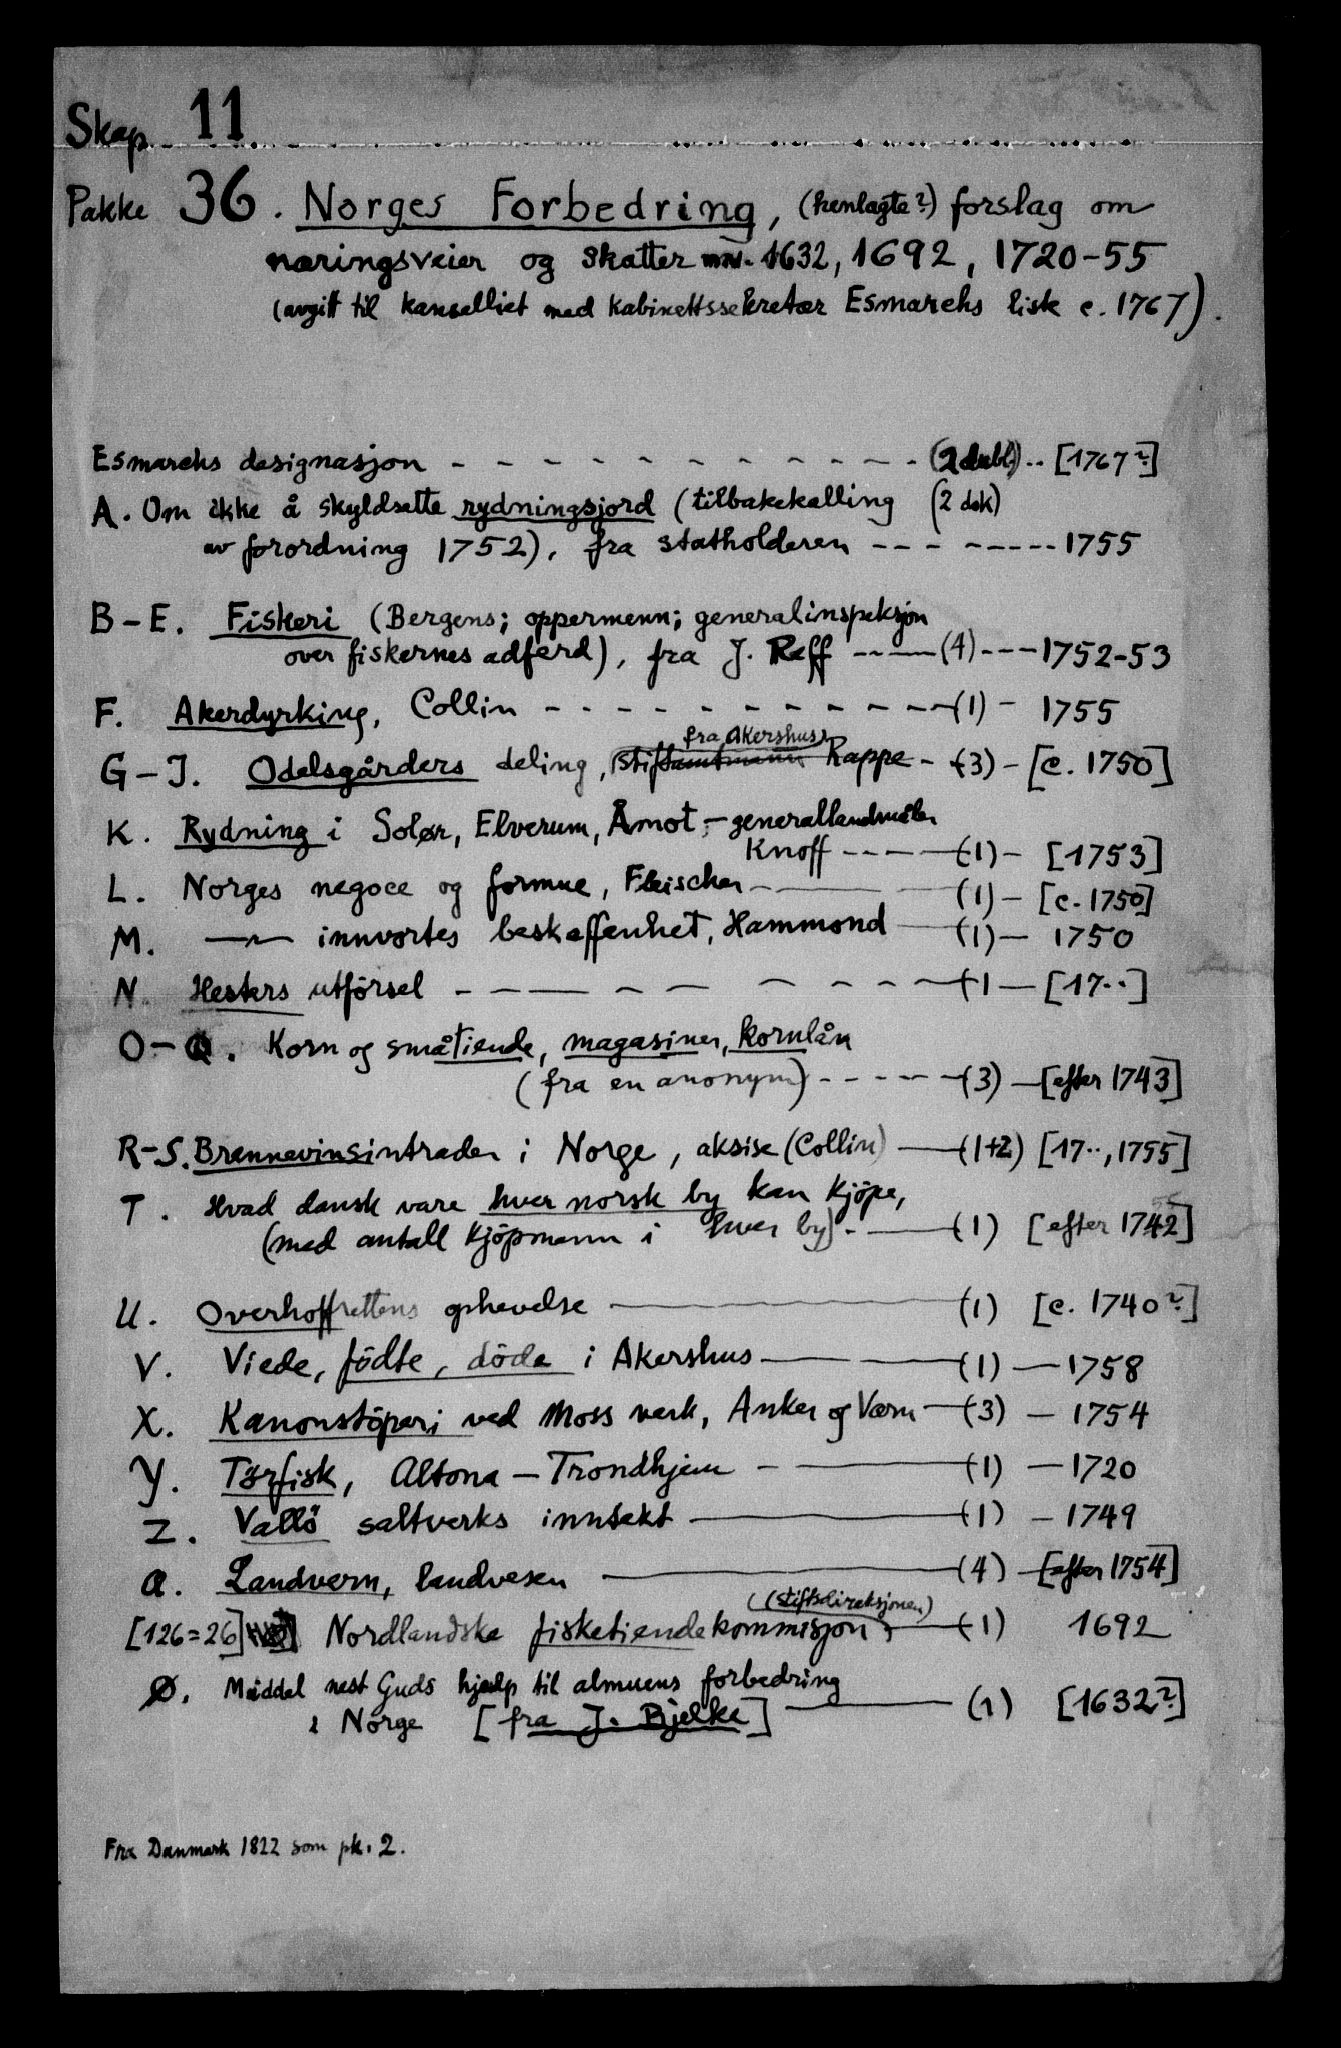 Skap 11
Pakke 36. Norges Forbedring, (henlagte?) forslag om
næringsveier og skatter 1632, 1692, 1720-55
(avgitt til kanselliet med kabinettssekretær Esmarchs liste c. 1767).
Esmarchs designasjon - - - (2 dubl.) .. [1767?]
A. Om ikke å skyldsette rydningsjord (tilbakekalling (2 dok)
av forordning 1752), fra statholderen - - - 1755
B-E. Fiskeri (Bergens; oppermenn; generalinspeksjon
over fiskernes adferd), fra J. Reff - - - (4) - - - 1752-53
F. Akerdyrking, Collin - - - (1) - 1755
fra Akershus
G-J. Odelsgårders deling, stiftamtmann Rappe - (3) - [c. 1750]
K. Rydning i Solør, Elverum, Åmot, - generallandmåler
Knoff - - - (1) - [1753]
L. Norges negoce og formue, Fleischer - (1) - [c. 1750]
M. —"— innvortes beskaffenhet, Hammond — (1) — 1750
N. Hesters utförsel - - - (1 — [17..]
O-Q. Korn og småtiende, magasiner, kornlån
(fra en anonym) - - - (3) — [efter 1743]
R-S. Brennevinsintrader i Norge, aksise (Collin) — (1+2) [17.., 1755]
T. Hvad dansk vare hver norsk by kan kjöpe,
(med antall kjöpmenn i hver by). — (1) [efter 1742]
U. Overhoffrettens ophevelse — (1) [c. 1740?]
V. Viede, födte, döde i Akershus — (1) — 1758
X. Kanonstöperi ved Moss verk, Anker og Værn — (3) — 1754
Y. Tørfisk, Altona — Trondhjem - — (1) — 1720
Z. Vallö saltverks inntekt — (1) — 1749
a. Landvern, landvesen — (4) — [efter 1754]
(stiftsdireksjonen)
[126=26] Nordlandske fisketiendekommisjon, — (1) 1692
Ø. Middel nest Guds hjælp til almuens forbedring
i Norge [fra J. Bjelke] — (1) [1632?]
Fra Danmark 1822 som pk. 2.